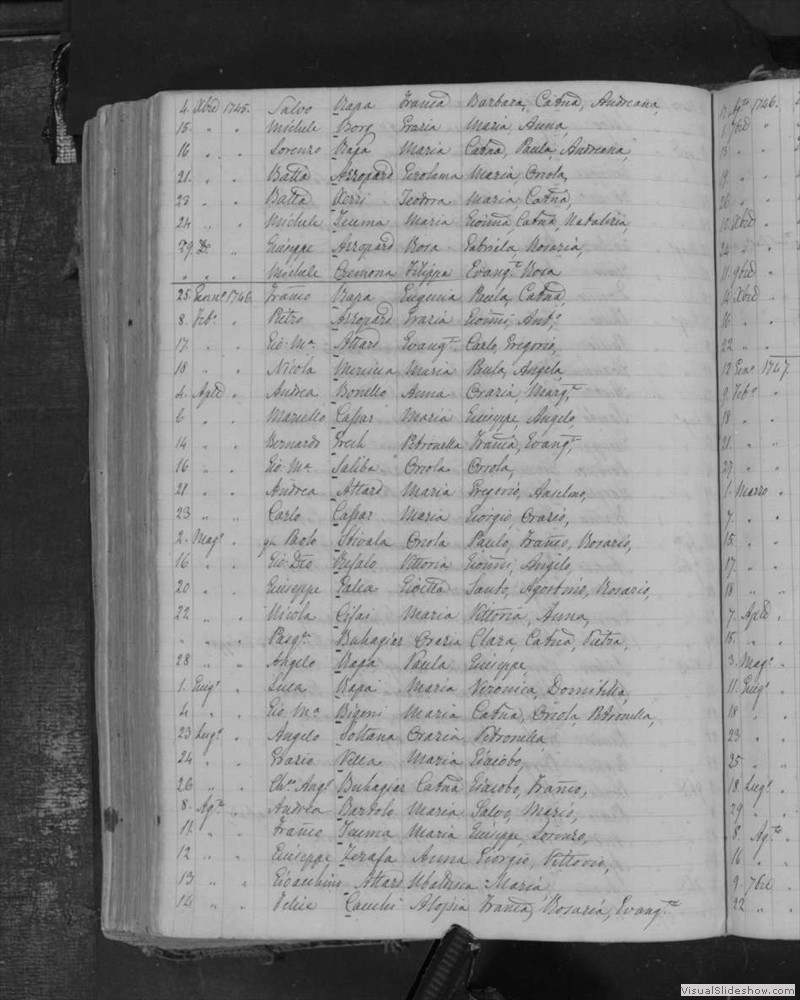 4. Xbre 1745. Salvo Rapa Franca Barbara, Catna, Andreana,
15. " " Michele Borg Grazia Maria, Anna,
16 " " Lorenzo Rapa Maria Catna, Paula, Andreana,
21. " " Batta Azzopard Girolama Maria, Oriola,
23 " " Batta Teodora Maria, Catna,
24 " " Michele Zemma Maria Gioanna, Catna, Natalizia,
29. Do " Giuseppe Azzopard Rosa Gabriela, Rosaria,
" " " Michele Cremona Filippa Evangta Rosa
25. Genno 1746. Franco Rapa Eugenia Paula, Catna,
8. Febo " Pietro Azzopard Grazia Gioanni, Anto,
17. " " Gio Ma Attard Evangta Carlo, Gregorio,
18 " " Nicola Maria Paula, Angela,
4. Aple " Andrea Bonello Anna Grazia, Margta
6 " " Marcello Caspar Maria Giuseppe, Angelo,
14 " " Bernardo Grech Petronella Franca, Evangta,
16 " " Gio Ma Saliba Oriola Oriola,
21 " " Andrea Attard Maria Gregorio, Anselmo,
23 " " Carlo Caspar Maria Giorgio, Orazio,
2. Mago " qm Paolo Stivala Oriola Paulo, Franco, Rosario,
16 " " Gio Dco Vittoria Gioanni, Angelo,
20 " " Giuseppe Galea Santo, Agostino, Rosario,
22 " " Nicola Maria Vittoria, Anna,
" " " Pasqle Buhagier Grazia Clara, Catna, Pietra,
28 " " Angelo Rapa Paula Giuseppe
1. Giugo " Luca Rapa Maria Veronica, Domitilla,
4 " " Gio Ma Bigeni Maria Catna, Oriola, Petronella,
23 Lugo " Angelo Soltana Grazia Petronella
24 " " Grazio Vella Maria Giacobo,
26 " " Angl Buhagier Catna Giacobo, Franco,
8. Agto " Andrea Bartolo Maria Salvo, Mario,
11 " " Franco Zemma Maria Giuseppe, Lorenzo,
12 " " Giuseppe Zerafa Anna Giorgio, Vittorio,
13 " " Gioacchino Attard Ubaldesca Maria
14 " " Felice Aloisia Franca, Rosaria, Evangta
Agto 1746.
7bre "
10 Xbre
11. 9bre
14 Xbre
16
22 "
12 Geno 1747.
9. Febo "
18 "
21. "
27. "
1. Marzo
7. "
15. "
17. "
18 "
7. Aple
15. "
3. Mago
11. Giugo
18 "
23 "
25 "
18. Lugo
29 "
8. Agto
16 "
9. 7bre
22 "
VisualSlideshow.com